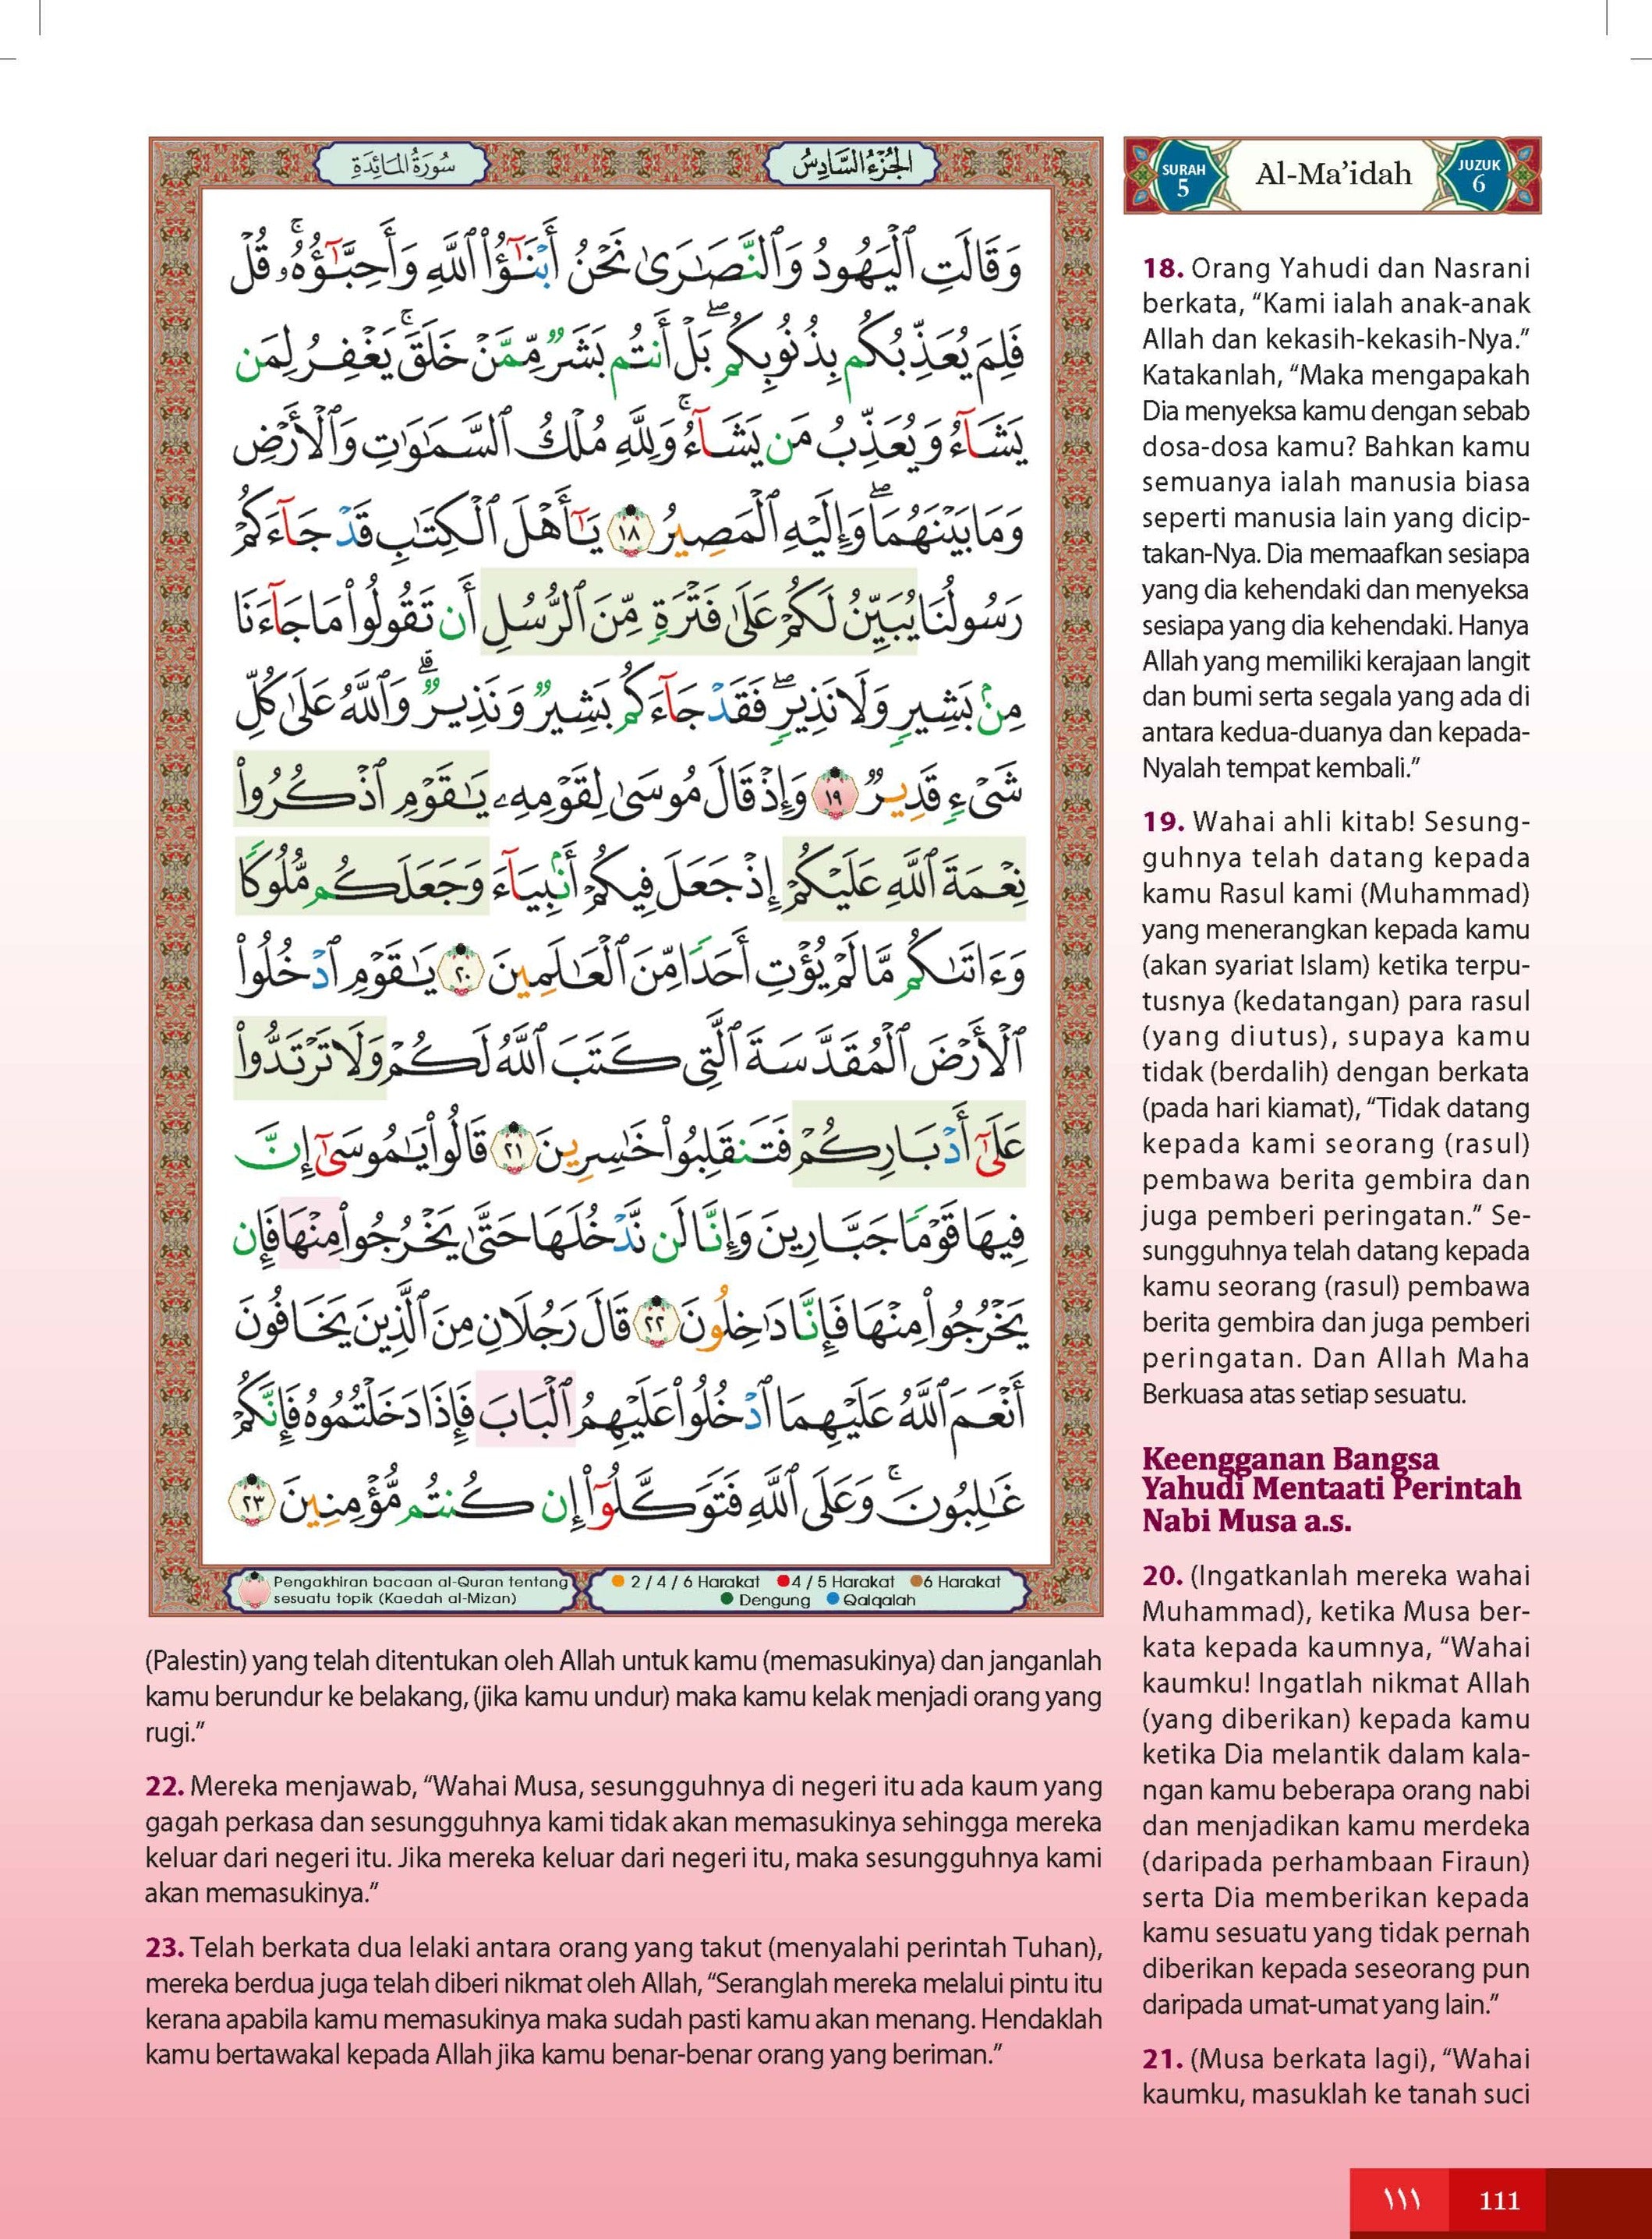 سُورَةُ المَائِدَةِ
الجُزْءُ السَّادِسُ
وَقَالَتِ ٱلْيَهُودُ وَٱلنَّصَٰرَىٰ نَحْنُ أَبْنَٰٓؤُا۟ ٱللَّهِ وَأَحِبَّٰٓؤُهُۥ ۚ قُلْ
فَلِمَ يُعَذِّبُكُم بِذُنُوبِكُم ۖ بَلْ أَنتُم بَشَرٌ مِّمَّنْ خَلَقَ ۚ يَغْفِرُ لِمَن
يَشَآءُ وَيُعَذِّبُ مَن يَشَآءُ ۚ وَلِلَّهِ مُلْكُ ٱلسَّمَٰوَٰتِ وَٱلْأَرْضِ
وَمَا بَيْنَهُمَا ۖ وَإِلَيْهِ ٱلْمَصِيرُ ١٨ يَٰٓأَهْلَ ٱلْكِتَٰبِ قَدْ جَآءَكُمْ
رَسُولُنَا يُبَيِّنُ لَكُمْ عَلَىٰ فَتْرَةٍ مِّنَ ٱلرُّسُلِ أَن تَقُولُوا۟ مَا جَآءَنَا
مِنۢ بَشِيرٍ وَلَا نَذِيرٍ ۖ فَقَدْ جَآءَكُم بَشِيرٌ وَنَذِيرٌ ۗ وَٱللَّهُ عَلَىٰ كُلِّ
شَىْءٍ قَدِيرٌ ١٩ وَإِذْ قَالَ مُوسَىٰ لِقَوْمِهِۦ يَٰقَوْمِ ٱذْكُرُوا۟
نِعْمَةَ ٱللَّهِ عَلَيْكُمْ إِذْ جَعَلَ فِيكُمْ أَنۢبِيَآءَ وَجَعَلَكُم مُّلُوكًا
وَءَاتَىٰكُم مَّا لَمْ يُؤْتِ أَحَدًا مِّنَ ٱلْعَٰلَمِينَ ٢٠ يَٰقَوْمِ ٱدْخُلُوا۟
ٱلْأَرْضَ ٱلْمُقَدَّسَةَ ٱلَّتِى كَتَبَ ٱللَّهُ لَكُمْ وَلَا تَرْتَدُّوا۟
عَلَىٰٓ أَدْبَارِكُمْ فَتَنقَلِبُوا۟ خَٰسِرِينَ ٢١ قَالُوا۟ يَٰمُوسَىٰٓ إِنَّ
فِيهَا قَوْمًا جَبَّارِينَ وَإِنَّا لَن نَّدْخُلَهَا حَتَّىٰ يَخْرُجُوا۟ مِنْهَا فَإِن
يَخْرُجُوا۟ مِنْهَا فَإِنَّا دَٰخِلُونَ ٢٢ قَالَ رَجُلَانِ مِنَ ٱلَّذِينَ يَخَافُونَ
أَنْعَمَ ٱللَّهُ عَلَيْهِمَا ٱدْخُلُوا۟ عَلَيْهِمُ ٱلْبَابَ فَإِذَا دَخَلْتُمُوهُ فَإِنَّكُمْ
غَٰلِبُونَ ۚ وَعَلَى ٱللَّهِ فَتَوَكَّلُوٓا۟ إِن كُنتُم مُّؤْمِنِينَ ٢٣
Pengakhiran bacaan al-Quran tentang
sesuatu topik (Kaedah al-Mizan)
2 / 4 / 6 Harakat 4 / 5 Harakat 6 Harakat
Dengung Qalqalah
SURAH
5
Al-Ma’idah
JUZUK
6
18. Orang Yahudi dan Nasrani
berkata, “Kami ialah anak-anak
Allah dan kekasih-kekasih-Nya.”
Katakanlah, “Maka mengapakah
Dia menyeksa kamu dengan sebab
dosa-dosa kamu? Bahkan kamu
semuanya ialah manusia biasa
seperti manusia lain yang dicip-
takan-Nya. Dia memaafkan sesiapa
yang dia kehendaki dan menyeksa
sesiapa yang dia kehendaki. Hanya
Allah yang memiliki kerajaan langit
dan bumi serta segala yang ada di
antara kedua-duanya dan kepada-
Nyalah tempat kembali.”
19. Wahai ahli kitab! Sesung-
guhnya telah datang kepada
kamu Rasul kami (Muhammad)
yang menerangkan kepada kamu
(akan syariat Islam) ketika terpu-
tusnya (kedatangan) para rasul
(yang diutus), supaya kamu
tidak (berdalih) dengan berkata
(pada hari kiamat), “Tidak datang
kepada kami seorang (rasul)
pembawa berita gembira dan
juga pemberi peringatan.” Se-
sungguhnya telah datang kepada
kamu seorang (rasul) pembawa
berita gembira dan juga pemberi
peringatan. Dan Allah Maha
Berkuasa atas setiap sesuatu.
Keengganan Bangsa
Yahudi Mentaati Perintah
Nabi Musa a.s.
20. (Ingatkanlah mereka wahai
Muhammad), ketika Musa ber-
kata kepada kaumnya, “Wahai
kaumku! Ingatlah nikmat Allah
(yang diberikan) kepada kamu
ketika Dia melantik dalam kala-
ngan kamu beberapa orang nabi
dan menjadikan kamu merdeka
(daripada perhambaan Firaun)
serta Dia memberikan kepada
kamu sesuatu yang tidak pernah
diberikan kepada seseorang pun
daripada umat-umat yang lain.”
21. (Musa berkata lagi), “Wahai
kaumku, masuklah ke tanah suci
(Palestin) yang telah ditentukan oleh Allah untuk kamu (memasukinya) dan janganlah
kamu berundur ke belakang, (jika kamu undur) maka kamu kelak menjadi orang yang
rugi.”
22. Mereka menjawab, “Wahai Musa, sesungguhnya di negeri itu ada kaum yang
gagah perkasa dan sesungguhnya kami tidak akan memasukinya sehingga mereka
keluar dari negeri itu. Jika mereka keluar dari negeri itu, maka sesungguhnya kami
akan memasukinya.”
23. Telah berkata dua lelaki antara orang yang takut (menyalahi perintah Tuhan),
mereka berdua juga telah diberi nikmat oleh Allah, “Seranglah mereka melalui pintu itu
kerana apabila kamu memasukinya maka sudah pasti kamu akan menang. Hendaklah
kamu bertawakal kepada Allah jika kamu benar-benar orang yang beriman.”
١١١ 111